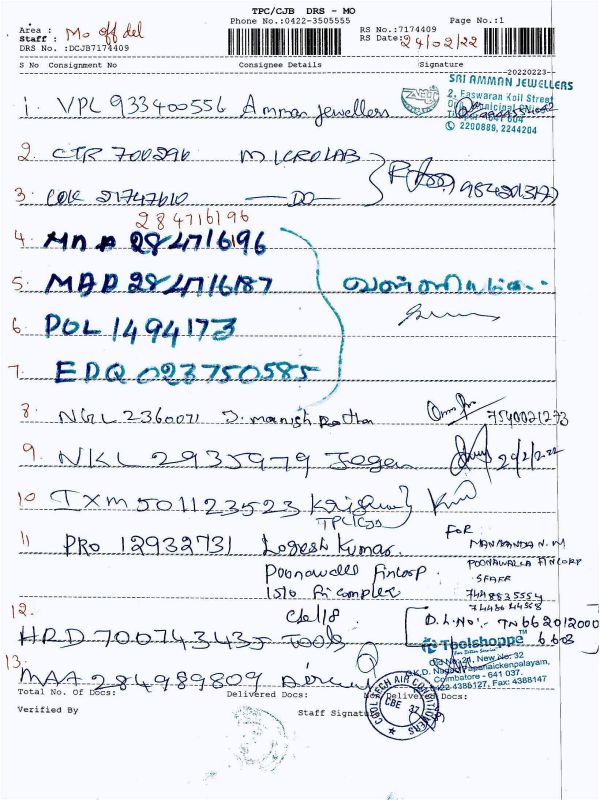 TPC/CJB DRS - MO
Phone No.:0422-3505555
Page No.:1
Area : Mo off del
Staff :
DRS No. :DCJB7174409
RS No.:7174409
RS Date: 24/02/22
S No Consignment No Consignee Details Signature
20220223
1. VPL 933400556 Amman Jewellers
SRI AMMAN JEWELLERS
2, Easwaran Koil Street
2200889, 2244204
2. CTR 700296 MICROLAB
3. 21747610 DO
284716196
4. 284716196
5. MAD 284716187
6. POL 1494173
7. EDQ 023750585
8 NGL 2360071 S. manish
7540021273
9. NKL 2935979 Jegan
10 TXM 501123523 Krishna
TPC/CJB
11 PRO 12932731 Logesh Kumar.
FOR
MANIKANDAN. M
Poonawalla Fincorp
POONAWALLA FINCORP
1510 Ri complex
STAFF
7448835554
7448644558
12. HRD 700743435 Tools
D.L.No: TN662012000
6603
Toolshoppe
Old No: 21, New No: 32
Coimbatore - 641 037.
0422-4386127, Fax: 4388147
13. MAA 284989809
Total No. Of Docs: Delivered Docs: Non Delivered Docs:
Verified By Staff Signature
COOL TECH AIR CONDITIONERS
CBE 37